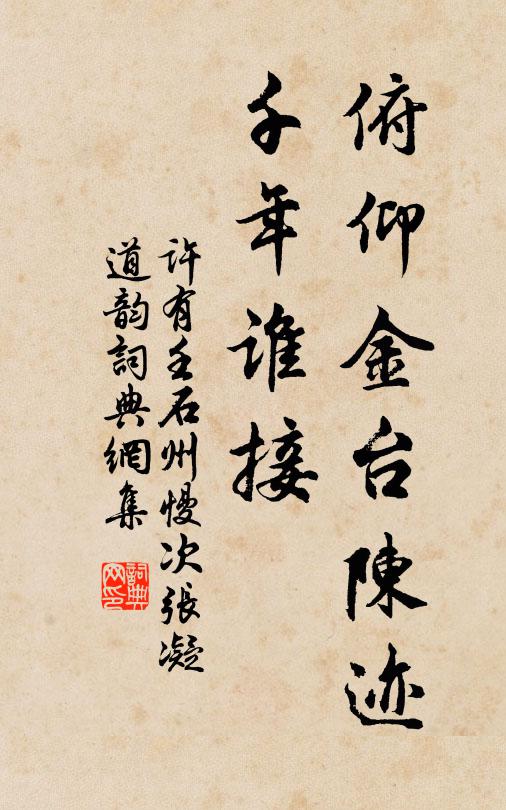 俯仰金台陳迹
千年誰接
許有壬石州慢次張凝
道韵詞典網集
詞典
网印